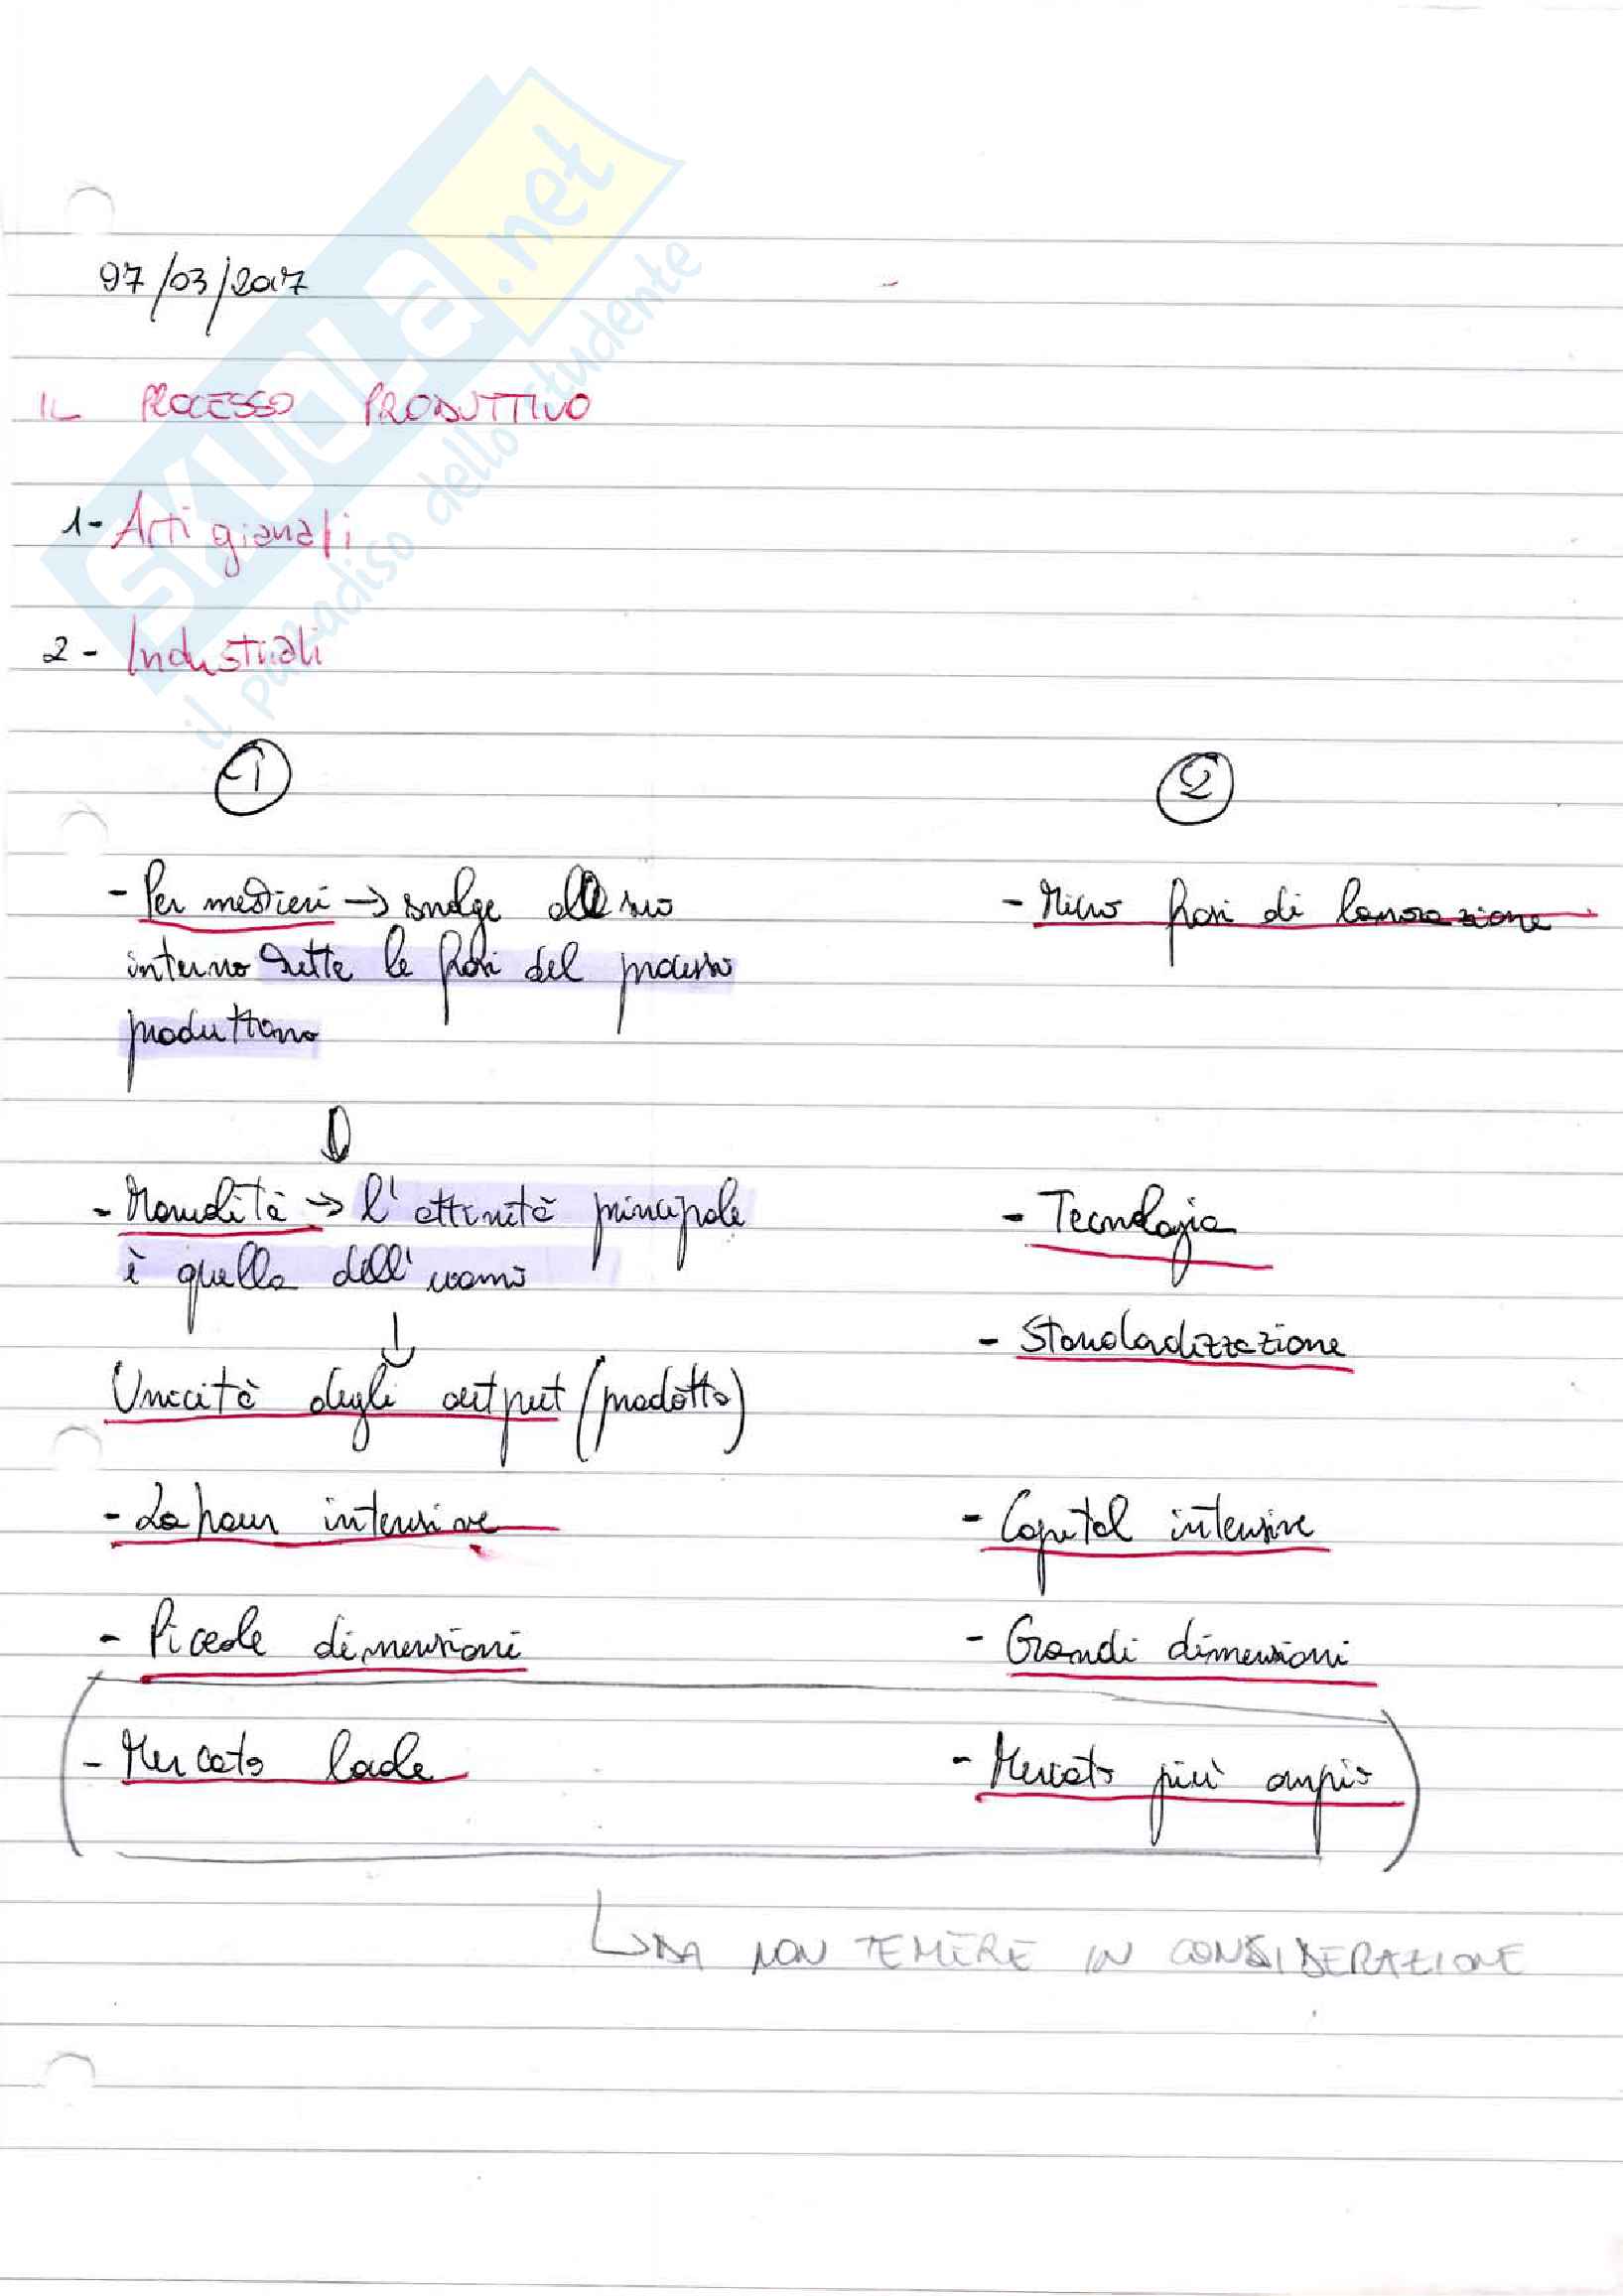 SKUOLA.net
il paradiso dello studente
07/03/2017
IL PROCESSO PRODUTTIVO
1- Artigianali
2- Industriali
1 2
- Per mestieri → svolge al suo - Micro fasi di lavorazione
interno tutte le fasi del processo
produttivo
↓
- Manualità → l'attività principale - Tecnologia
è quella dell'uomo
↓ - Standardizzazione
Unicità degli output (prodotto)
- Labour intensive - Capital intensive
- Piccole dimensioni - Grandi dimensioni
- Mercato locale - Mercato più ampio
↳ DA NON TENERE IN CONSIDERAZIONE